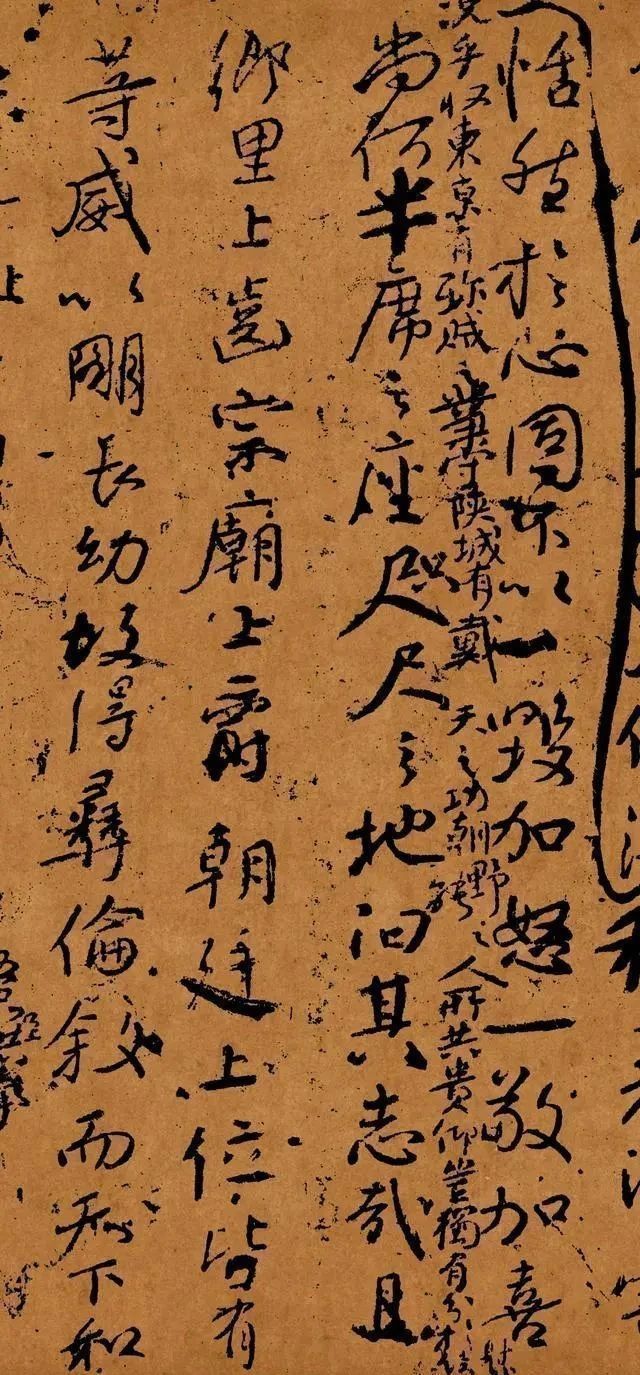 恬然於心固不以一毀加怒一敬加喜
況乎收東京有殄賊之業守陝城有戴天之功朝野之人所共貴仰豈獨有分
尚何半席之座咫尺之地汩其志哉且
鄉里上齒宗廟上爵朝廷上位皆有
等威以明長幼故得彝倫敘而天下和